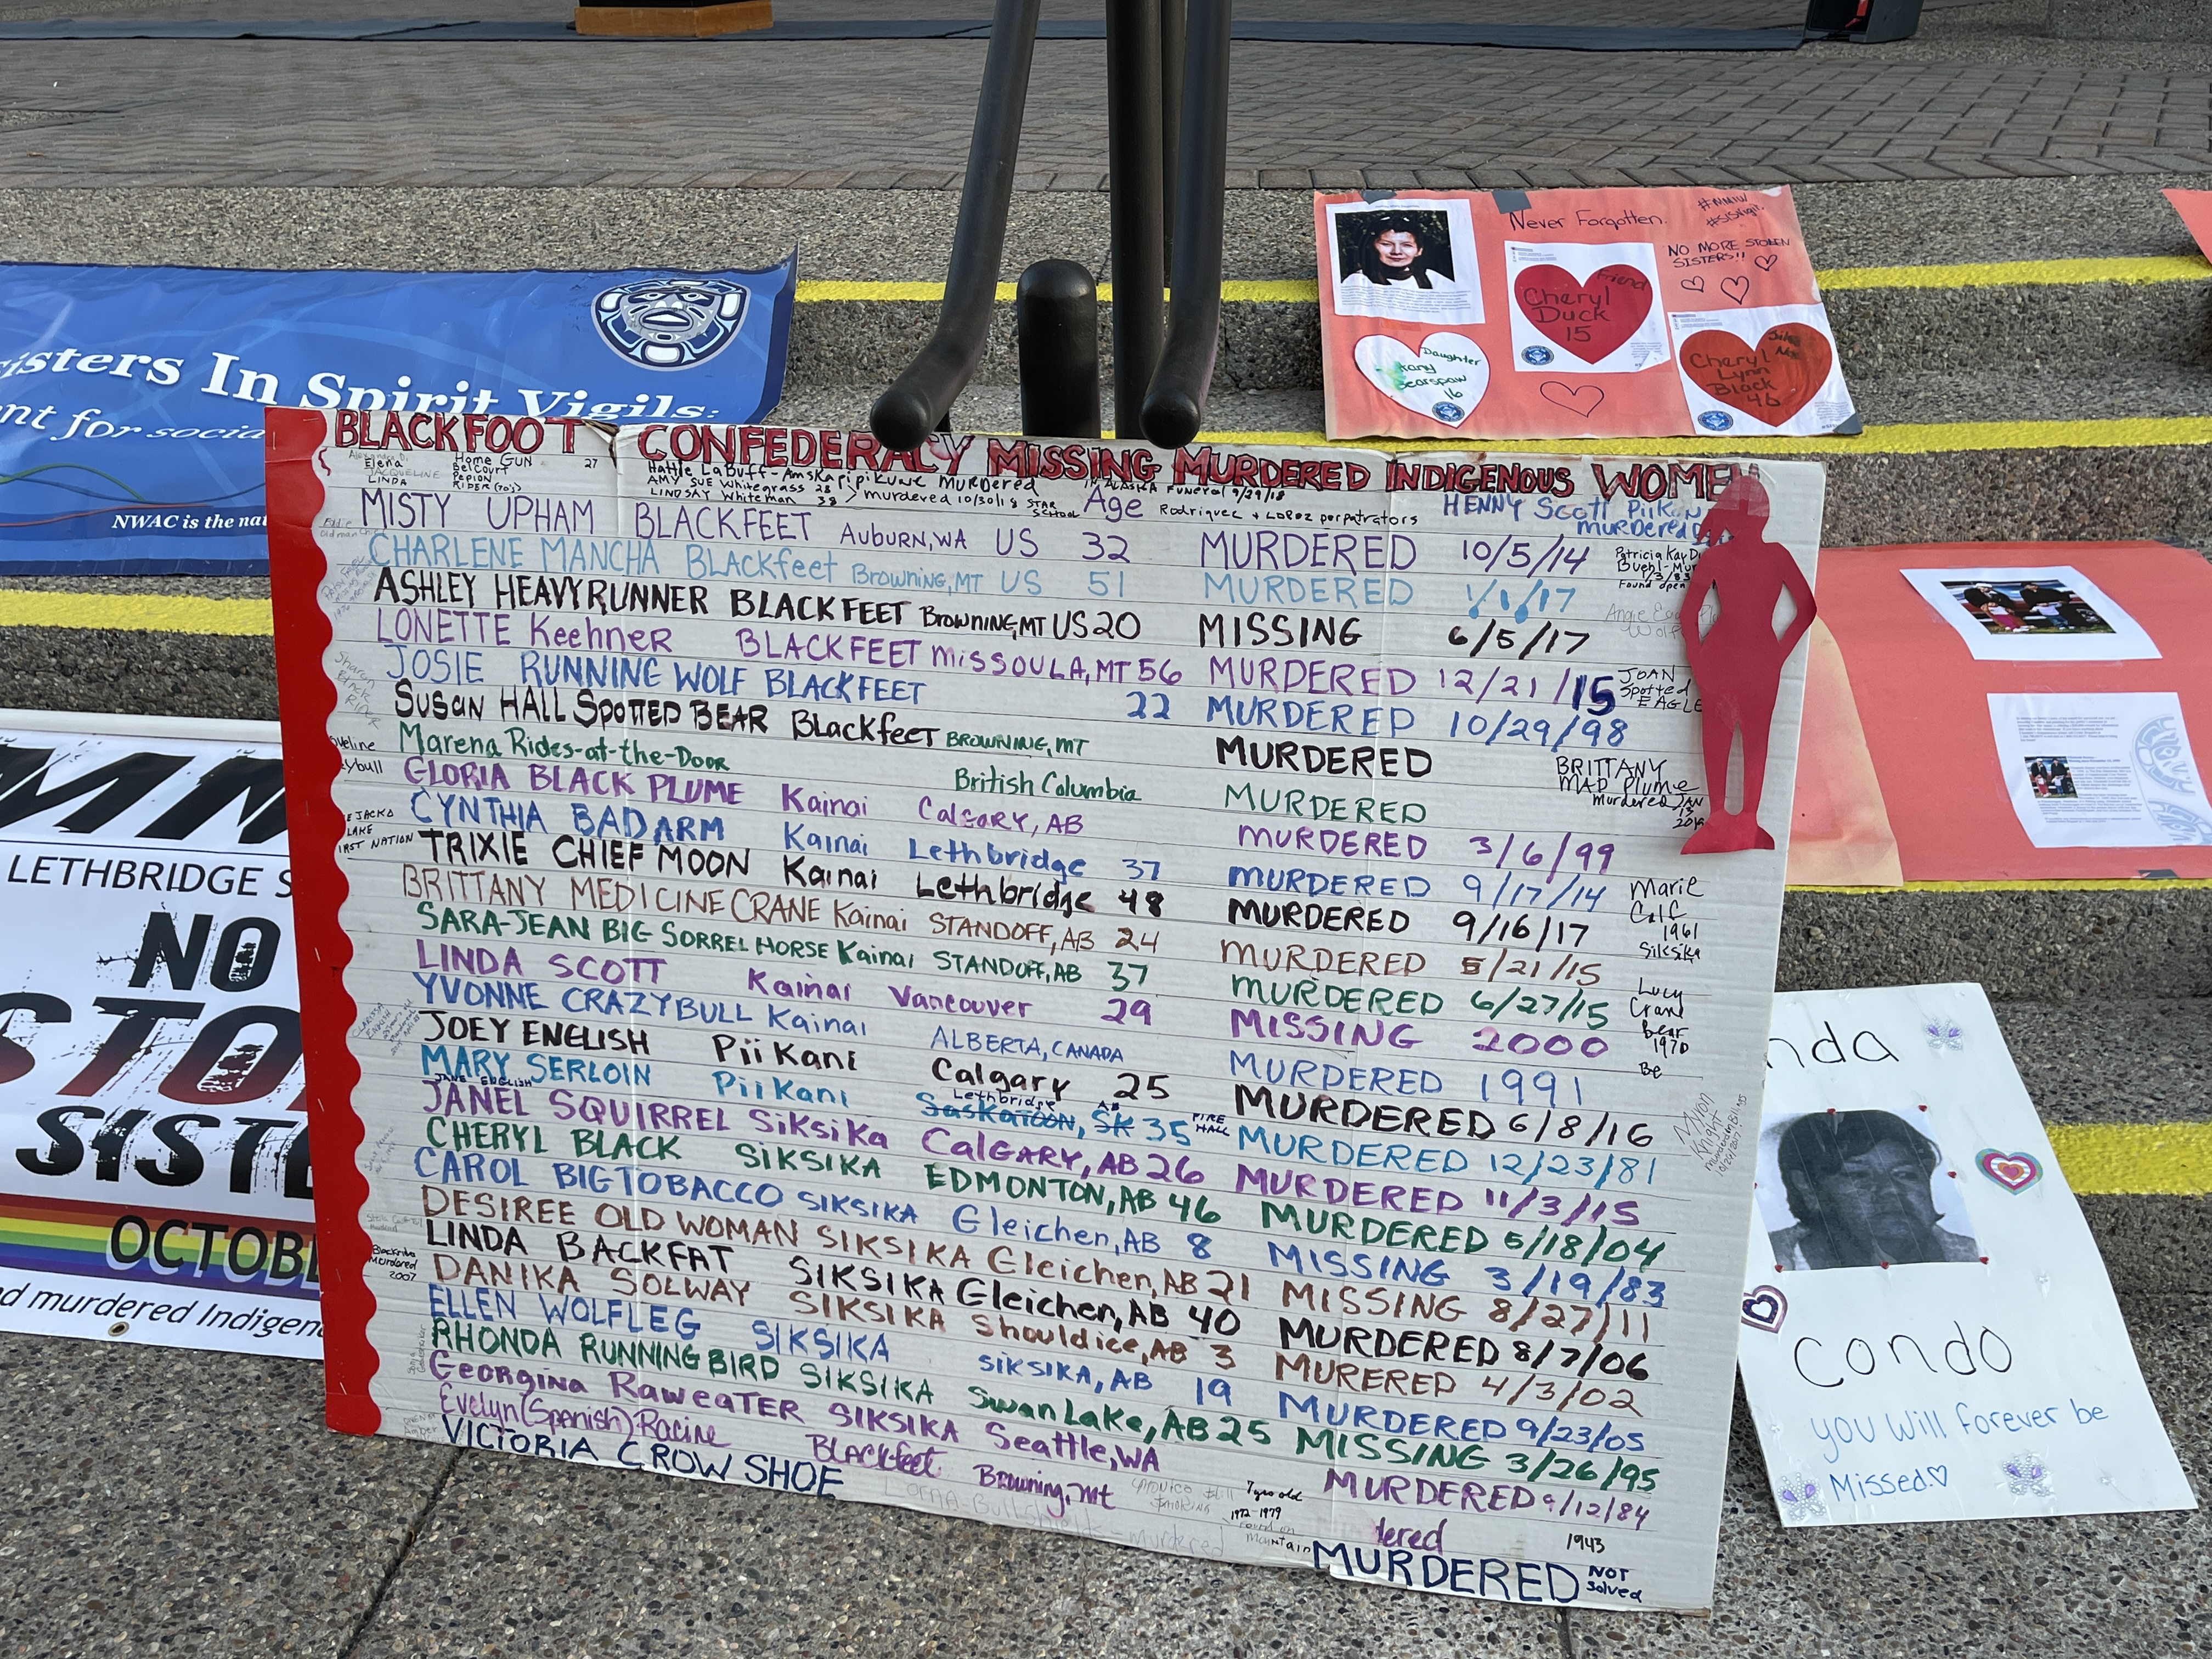 isters In Spirit Vigils:
nt for socia
NWAC is the nat
Never Forgotten.
NO MORE STOLEN
SISTERS!!
Friend
Cheryl
Duck
15
Daughter
16
Cheryl
Lynn
Black
46
BLACKFOOT CONFEDERACY MISSING MURDERED INDIGENOUS WOMEN
Elena Home GUN 27
JACQUELINE Pepion
LINDA RIDER (70's)
Hattie LaBuff - Amskapipikune Murdered
AMY SUE Whitegrass 28
LINDSAY Whiteman 38 > murdered 10/30/18 STAR SCHOOL
IN ALASKA FUNERAL 9/29/18
Age Rodriquez + LOPOZ perpatrators
HENNY Scott Piikan
murdered
MISTY UPHAM BLACKFEET AUBURN, WA US 32 MURDERED 10/5/14
CHARLENE MANCHA Blackfeet Browning, MT US 51 MURDERED 1/1/17
ASHLEY HEAVYRUNNER BLACKFEET Browning, MT US 20 MISSING 6/5/17
LONETTE Keehner BLACKFEET MISSOULA, MT 56 MURDERED 12/21/15
JOSIE RUNNING WOLF BLACKFEET 22 MURDERED 10/29/98
SUSAN HALL SPOTTED BEAR Blackfeet BROWNING, MT MURDERED
Marena Rides-at-the-Door British Columbia MURDERED
GLORIA BLACK PLUME Kainai CALGARY, AB MURDERED 3/6/99
CYNTHIA BADARM Kainai Lethbridge 37 MURDERED 9/17/14
TRIXIE CHIEF MOON Kainai Lethbridge 48 MURDERED 9/16/17
BRITTANY MEDICINE CRANE Kainai STANDOFF, AB 24 MURDERED 5/21/15
SARA-JEAN BIG SORREL HORSE Kainai STANDOFF, AB 37 MURDERED 6/27/15
LINDA SCOTT Kainai Vancouver 29 MISSING 2000
YVONNE CRAZYBULL Kainai ALBERTA, CANADA MURDERED 1991
JOEY ENGLISH PiiKani Calgary 25 MURDERED 6/8/16
MARY SERLOIN PiiKani Lethbridge AB Saskatoon, SK 35 FIRE HALL MURDERED 12/23/81
JANE ENGLISH
JANEL SQUIRREL SiksiKa CALGARY, AB 26 MURDERED 11/3/15
CHERYL BLACK SIKSIKA EDMONTON, AB 46 MURDERED 5/18/04
CAROL BIGTOBACCO SIKSIKA Gleichen, AB 8 MISSING 3/19/83
DESIREE OLD WOMAN SIKSIKA Gleichen, AB 21 MISSING 8/27/11
LINDA BACKFAT SIKSIKA Gleichen, AB 40 MURDERED 8/7/06
DANIKA SOLWAY SIKSIKA Shouldice, AB 3 MURERED 4/3/02
ELLEN WOLFLEG SIKSIKA SIKSIKA, AB 19 MURDERED 9/23/05
RHONDA RUNNING BIRD SIKSIKA Swan Lake, AB 25 MISSING 3/26/95
Georgina RaweATER SIKSIKA Seattle, WA MURDERED 9/12/84
Evelyn (Spanish) Racine BLACKfeet Browning, MT dered 1943
7 yrs old
1972-1979
found on
mountain
VICTORIA CROW SHOE MURDERED NOT Solved
Lorna-Bullshields - murdered
Patricia Kay
Found open
JOAN
Spotted
EAGLE
BRITTANY
MAD Plume
murdered JAN
13
Marie
Calf
1961
Siksika
Lucy
Crane
Bear
1970
Be
Myron
Knight
FIRST NATION
Murdered
2007
LETHBRIDGE S
NO
STO
SISTE
OCTOBE
d murdered Indigen
nda
Condo
you will forever be
Missed♡